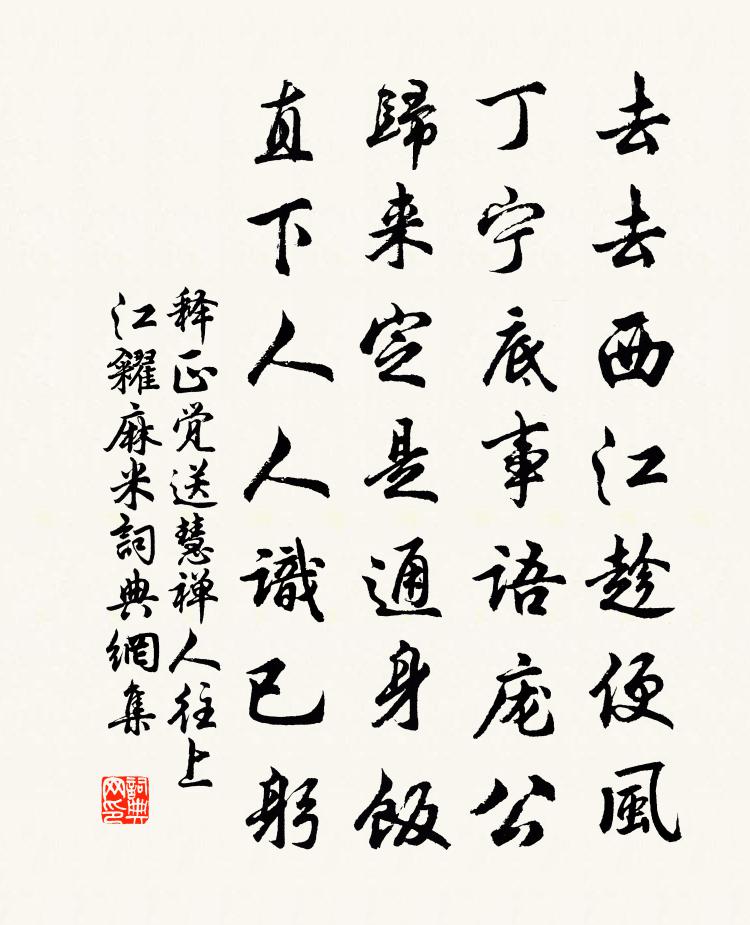 去去西江趁便風
丁宁底事语庞公
歸来定是通身飯
直下人人識已躬
释正觉送慧禅人往上
江糴麻米詞典網集
詞典
网印